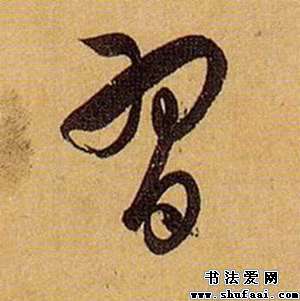 習
书法爱网
www.shufaai.com